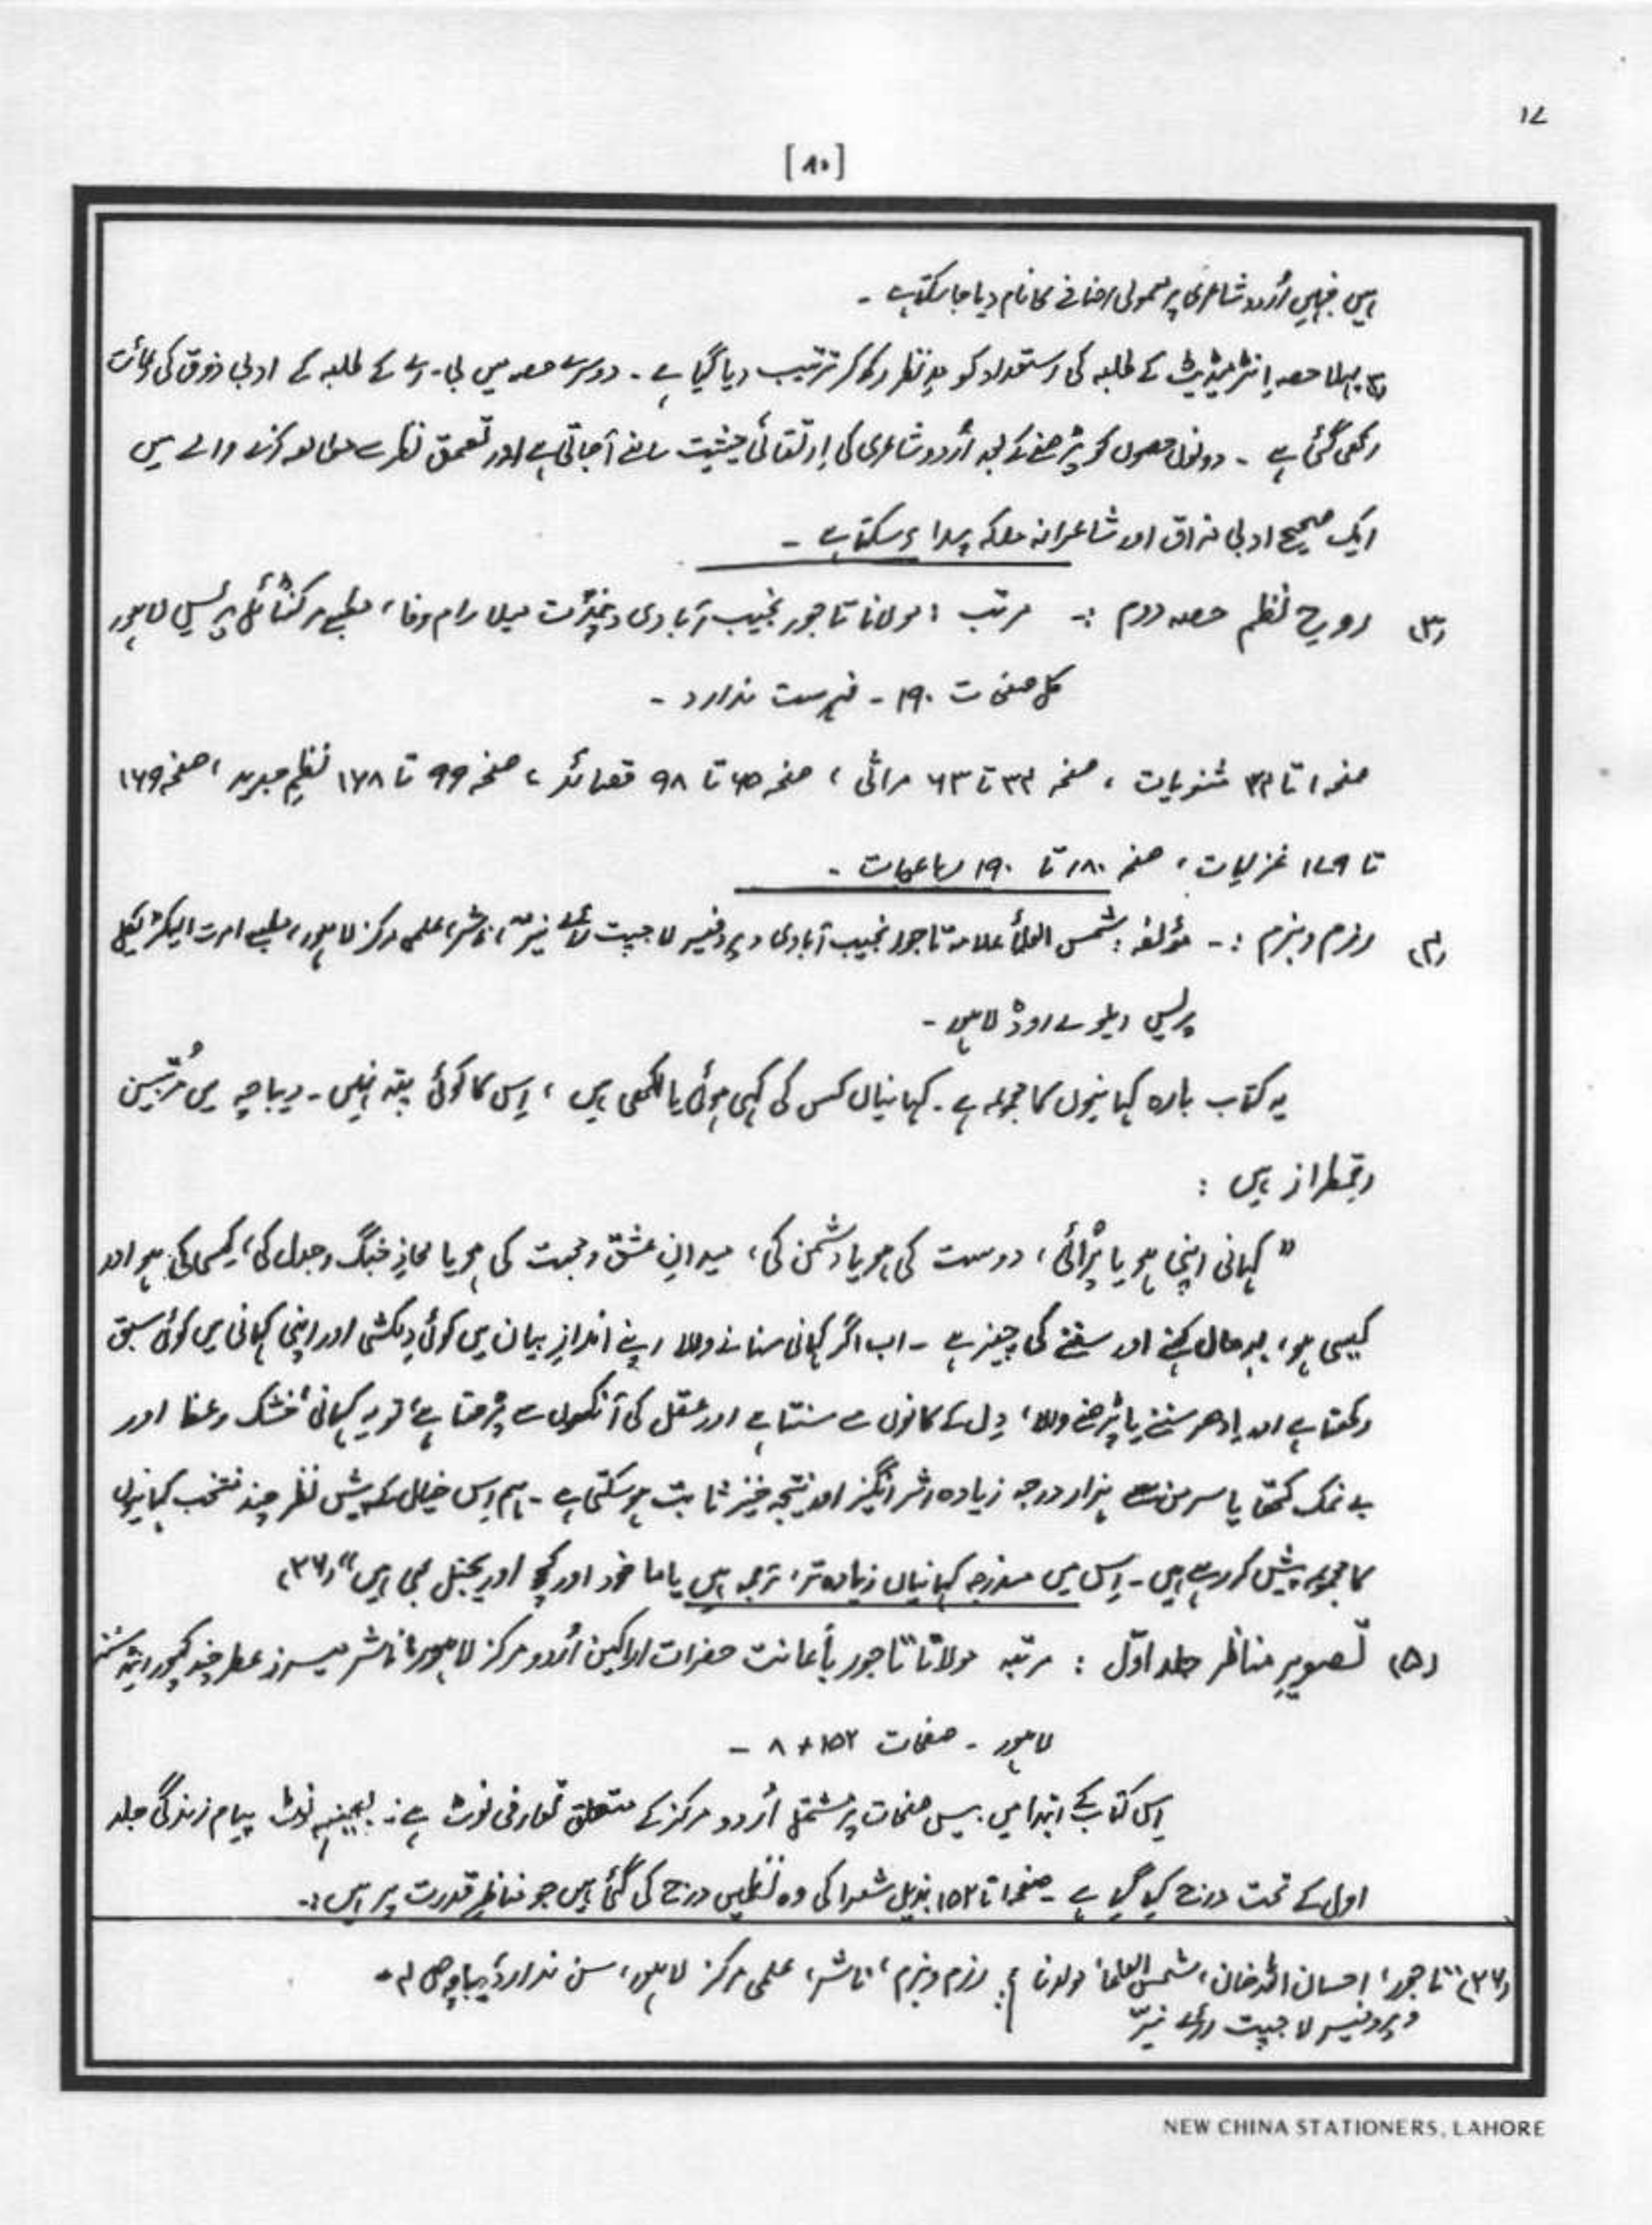 ۱۷
[۸۰]
ہیں جنہیں اُردو شاعری پر معمولی اضافے کا نام دیا جا سکتا ہے ۔
(۳) پہلا حصہ اِنٹرمیڈیٹ کے طلبہ کی استعداد کو مدِنظر رکھ کر ترتیب دیا گیا ہے ۔ دوسرے حصہ میں بی۔اے کے طلبہ کے ادبی ذوق کی رعائت
رکھی گئی ہے ۔ دونوں حصوں کو پڑھنے کے بعد اُردو شاعری کی اِرتقائی حیثیت سامنے آ جاتی ہے اور تعمق نظر سے مطالعہ کرنے والے میں
ایک صحیح ادبی مذاق اور شاعرانہ ملکہ پیدا ہو سکتا ہے ۔
(۳) روحِ نظم حصہ دوم :۔ مرتب : مولانا تاجور نجیب آبادی و پنڈت میلا رام وفا ، مطبع مرکنٹائل پریس لاہور
کل صفحات ۱۹۰ ۔ فہرست ندارد ۔
صفحہ ۱ تا ۳۲ مثنویات ، صفحہ ۳۳ تا ۶۳ مراثی ، صفحہ ۶۵ تا ۹۸ قصائد ، صفحہ ۹۹ تا ۱۶۸ نظمِ جدید ، صفحہ ۱۶۹
تا ۱۷۹ غزلیات ، صفحہ ۱۸۰ تا ۱۹۰ رباعیات ۔
(۴) رزم و بزم :۔ مؤلفہ : شمس العلمأ علامہ تاجور نجیب آبادی و پروفیسر لاجپت رائے نیّر ، ناشر، علمی مرکز لاہور، مطبع امرت الیکٹریکل
پریس ریلوے روڈ لاہور ۔
یہ کتاب بارہ کہانیوں کا مجموعہ ہے ۔ کہانیاں کس کی کہی ہوئی یا لکھی ہیں ، اِس کا کوئی پتہ نہیں ۔ دیباچہ میں مُرتّبین
رقمطراز ہیں :
" کہانی اپنی ہو یا پَرائی ، دوست کی ہو یا دشمن کی ، میدانِ عشق و محبت کی ہو یا محاذِ جنگ و جدل کی ، کِسی کی ہو اور
کیسی ہو ، بہرحال کہنے اور سننے کی چیز ہے ۔ اب اگر کہانی سنانے والا اپنے اندازِ بیان میں کوئی دِلکشی اور اپنی کہانی میں کوئی سبق
رکھتا ہے اور اِدھر سننے یا پڑھنے والا ، دِل کے کانوں سے سنتا ہے اور عقل کی آنکھوں سے پڑھتا ہے ، تو یہ کہانی خشک وعظ اور
بے نمک کتھا یا سرمن سے ہزار درجہ زیادہ اثر انگیز اور نتیجہ خیز ثابت ہو سکتی ہے ۔ ہم اِس خیال کے پیشِ نظر چند منتخب کہانیوں
کا مجموعہ پیش کر رہے ہیں ۔ اِس میں مندرجہ کہانیاں زیادہ تر ترجمہ ہیں یا ماخوذ اور کچھ اوریجنل بھی ہیں " (۳۷)
(۵) تصویرِ مناظر جلد اوّل : مرتبہ مولانا تاجور بأعانت حضرات اراکین اُردو مرکز لاہور، ناشر میسرز عطر چند کپور اینڈ سنز
لاہور ۔ صفحات ۱۵۲ + ۸ ۔
اِس کتاب کے ابتدا میں بیس صفحات پر مشتمل اُردو مرکز کے متعلق تعارفی نوٹ ہے : بعینہٖ نوٹ پیامِ زندگی جلد
اول کے تحت درج کیا گیا ہے ۔ صفحہ ۱ تا ۱۵۲ بذیل شعرا کی وہ نظمیں درج کی گئی ہیں جو مناظرِ قدرت پر ہیں :۔
(۳۷) " تاجور ، احسان اللہ خان ، شمس العلمأ مولانا ؛ رزم و بزم ، ناشر ، علمی مرکز لاہور ، سن ندارد ، دیباچہ ص ۴ ۔
و پروفیسر لاجپت رائے نیّر
NEW CHINA STATIONERS, LAHORE